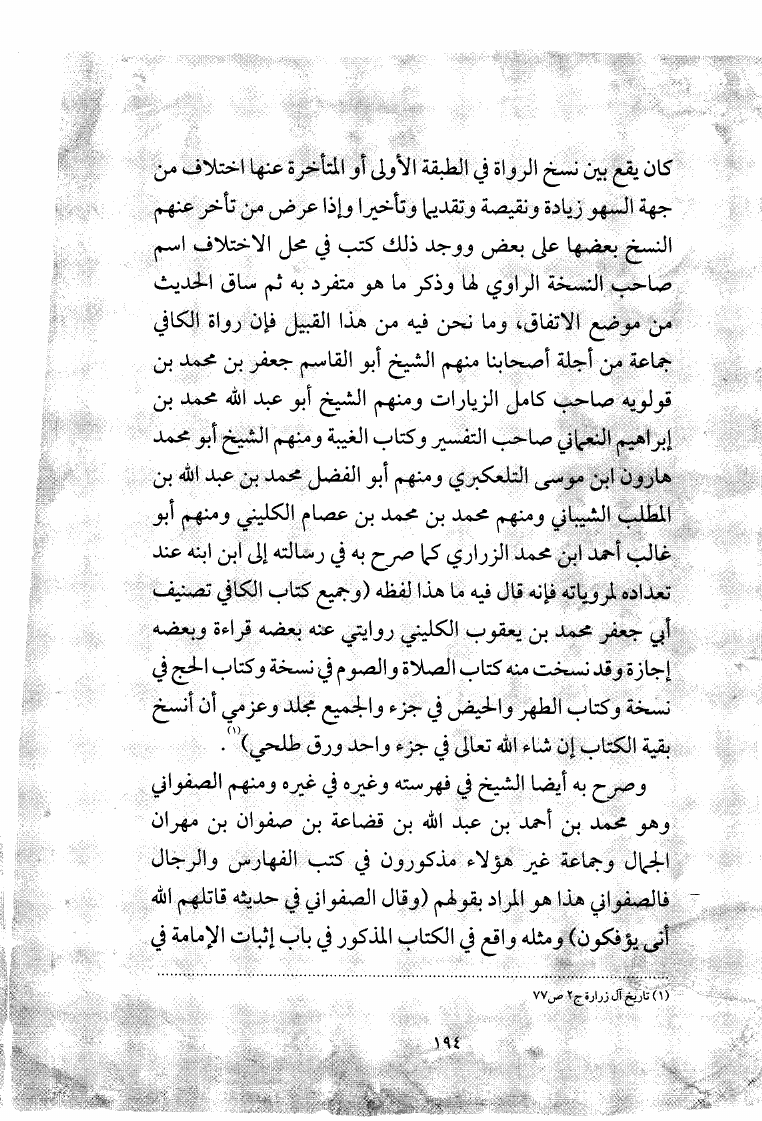 كان يقع بين نسخ الرواة في الطبقة الأولى أو المتأخرة عنها اختلاف من
جهة السهو زيادة ونقيصة وتقديما وتأخيرا وإذا عرض من تأخر عنهم
النسخ بعضها على بعض ووجد ذلك كتب في محل الاختلاف اسم
صاحب النسخة الراوي لها وذكر ما هو متفرد به ثم ساق الحديث
من موضع الاتفاق، وما نحن فيه من هذا القبيل فإن رواة الكافي
جماعة من أجلة أصحابنا منهم الشيخ أبو القاسم جعفر بن محمد بن
قولويه صاحب كامل الزيارات ومنهم الشيخ أبو عبد الله محمد بن
إبراهيم النعماني صاحب التفسير وكتاب الغيبة ومنهم الشيخ أبو محمد
هارون ابن موسى التلعكبري ومنهم أبو الفضل محمد بن عبد الله بن
المطلب الشيباني ومنهم محمد بن محمد بن عصام الكليني ومنهم أبو
غالب أحمد ابن محمد الزراري كما صرح به في رسالته إلى ابن ابنه عند
تعداده لمروياته فإنه قال فيه ما هذا لفظه (وجميع كتاب الكافي تصنيف
أبي جعفر محمد بن يعقوب الكليني روايتي عنه بعضه قراءة وبعضه
إجازة وقد نسخت منه كتاب الصلاة والصوم في نسخة وكتاب الحج في
نسخة وكتاب الطهر والحيض في جزء والجميع مجلد وعزمي أن أنسخ
بقية الكتاب إن شاء الله تعالى في جزء واحد ورق طلحي)(١).
وصرح به أيضا الشيخ في فهرسته وغيره في غيره ومنهم الصفواني
وهو محمد بن أحمد بن عبد الله بن قضاعة بن صفوان بن مهران
الجمال وجماعة غير هؤلاء مذكورون في كتب الفهارس والرجال
فالصفواني هذا هو المراد بقولهم (وقال الصفواني في حديثه قاتلهم الله
أنى يؤفكون) ومثله واقع في الكتاب المذكور في باب إثبات الإمامة في
(١) تاريخ آل زرارة ج٢ ص٧٧
١٩٤